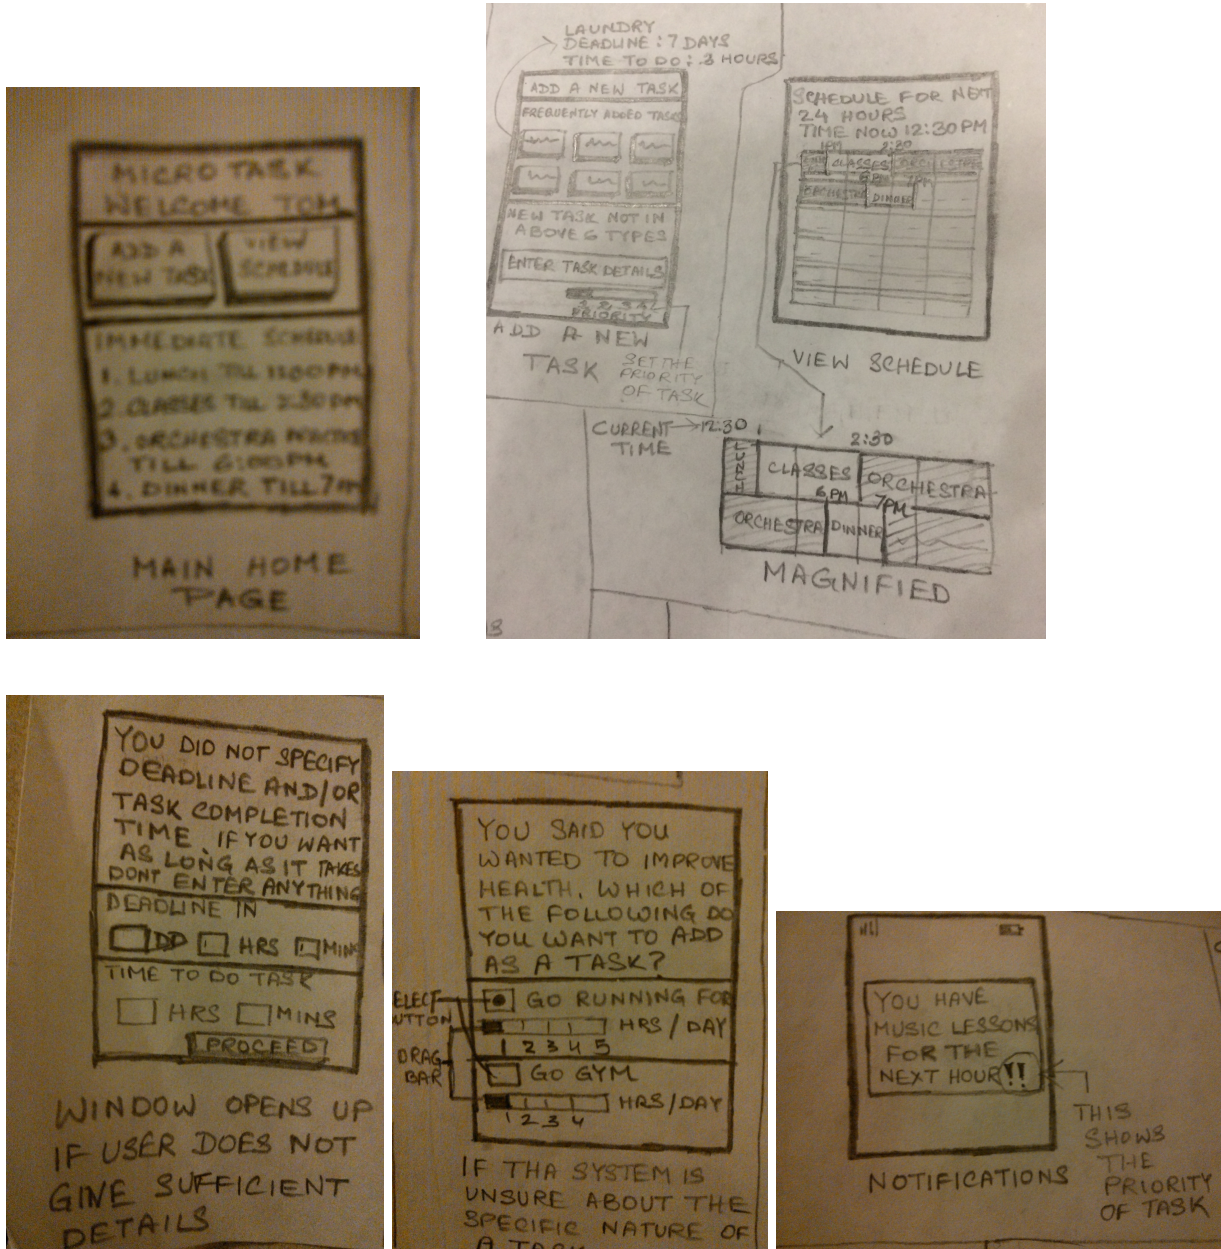 MICRO TASK
WELCOME TOM
ADD A
NEW TASK
VIEW
SCHEDULE
IMMEDIATE SCHEDULE
1. LUNCH TILL 1:00 PM
2. CLASSES TILL 2:30 PM
3. ORCHESTRA PRACTICE
TILL 6:00 PM
4. DINNER TILL 7 PM
MAIN HOME
PAGE
LAUNDRY
DEADLINE : 7 DAYS
TIME TO DO : 3 HOURS
ADD A NEW TASK
FREQUENTLY ADDED TASK
NEW TASK NOT IN
ABOVE 6 TYPES
ENTER TASK DETAILS
1 2 3 4
PRIORITY
ADD A NEW
TASK
SET THE
PRIORITY
OF TASK
SCHEDULE FOR NEXT
24 HOURS
TIME NOW 12:30 PM
1PM 2:30
CLASSES ORCHESTRA
6PM 7PM
ORCHESTRA DINNER
VIEW SCHEDULE
CURRENT
TIME
12:30 1 2:30
LUNCH CLASSES ORCHESTRA
6PM 7PM
ORCHESTRA DINNER
MAGNIFIED
YOU DID NOT SPECIFY
DEADLINE AND/OR
TASK COMPLETION
TIME. IF YOU WANT
AS LONG AS IT TAKES
DONT ENTER ANYTHING
DEADLINE IN
DD HRS MINS
TIME TO DO TASK
HRS MINS
PROCEED
WINDOW OPENS UP
IF USER DOES NOT
GIVE SUFFICIENT
DETAILS
YOU SAID YOU
WANTED TO IMPROVE
HEALTH. WHICH OF
THE FOLLOWING DO
YOU WANT TO ADD
AS A TASK?
GO RUNNING FOR
HRS / DAY
1 2 3 4 5
GO GYM
HRS/DAY
1 2 3 4
ELECT
UTTON
DRAG
BAR
IF THA SYSTEM IS
UNSURE ABOUT THE
SPECIFIC NATURE OF
A TASK
YOU HAVE
MUSIC LESSONS
FOR THE
NEXT HOUR !!
NOTIFICATIONS
THIS
SHOWS
THE
PRIORITY
OF TASK